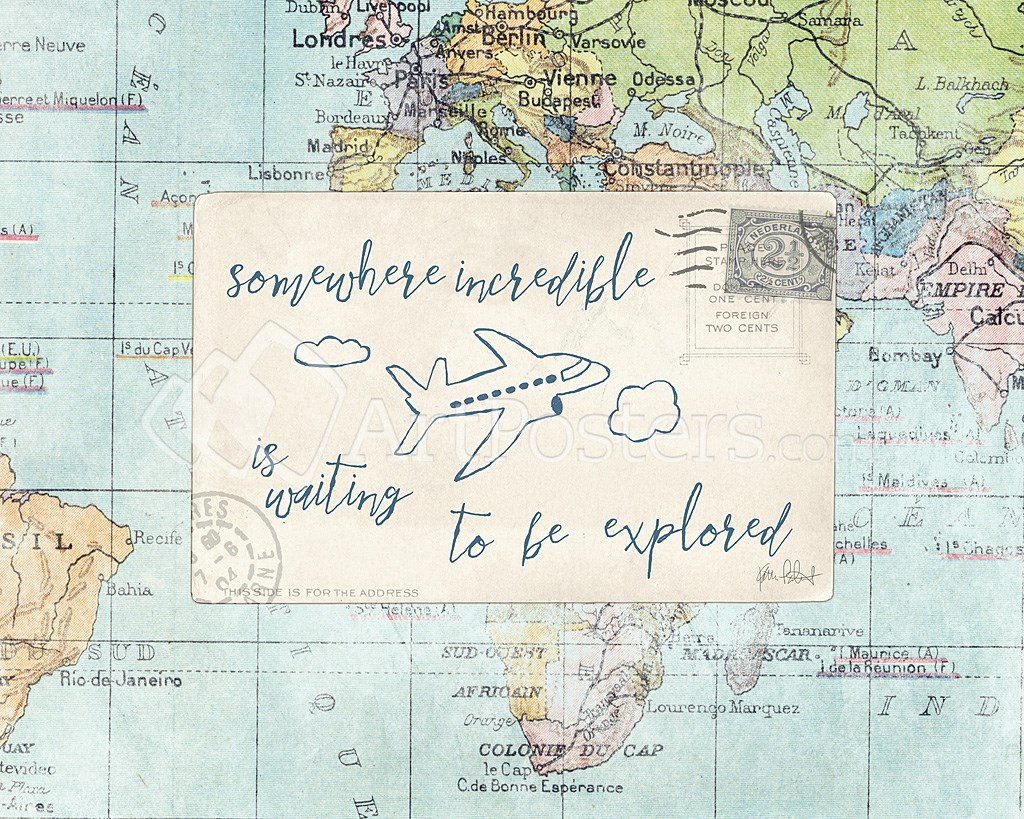 Dublin
Liverpool
Hambourg
Moscou
Samara
A
erre Neuve
Londres
Amst.
Berlin
Varsovie
Anvers
le Havre
Paris
Vienne
Odessa
L. Balkhach
St Nazaire
Budapest
ierre et Miquelon (F)
Bordeaux
Marseille
M. Noire
M. d'Aral
Tachkent
Rome
Madrid
Naples
Constantinople
Lisbonne
MEDI
Caspienne
Açor
s (A)
NEDERLAND
2½
2½ CENT
STAMP HERE
ONE CENT
FOREIGN
TWO CENTS
Kelat
Delhi
EMPIRE
Calcu
somewhere incredible
(E.U.)
upe (F)
que (F)
Is du Cap Ve
Bombay
D'OMAN
ArtPosters.com
Laquedives
Colombo
Is Maldives (A)
is
waiting
to be explored
OCEAN
chelles
(A)
Is Chagos
SIL
Recife
Bahia
THIS SIDE IS FOR THE ADDRESS
Ste Hélène (A)
DU SUD
SUD-OUEST
AFRICAIN
Beira
Tananarive
MADAGASCAR
I. Maurice (A)
I. de la Réunion (F)
Rio-de-Janeiro
Orange
Lourenço Marquez
IND
UAY
tevideo
COLONIE DU CAP
le Cap
C. de Bonne Espérance